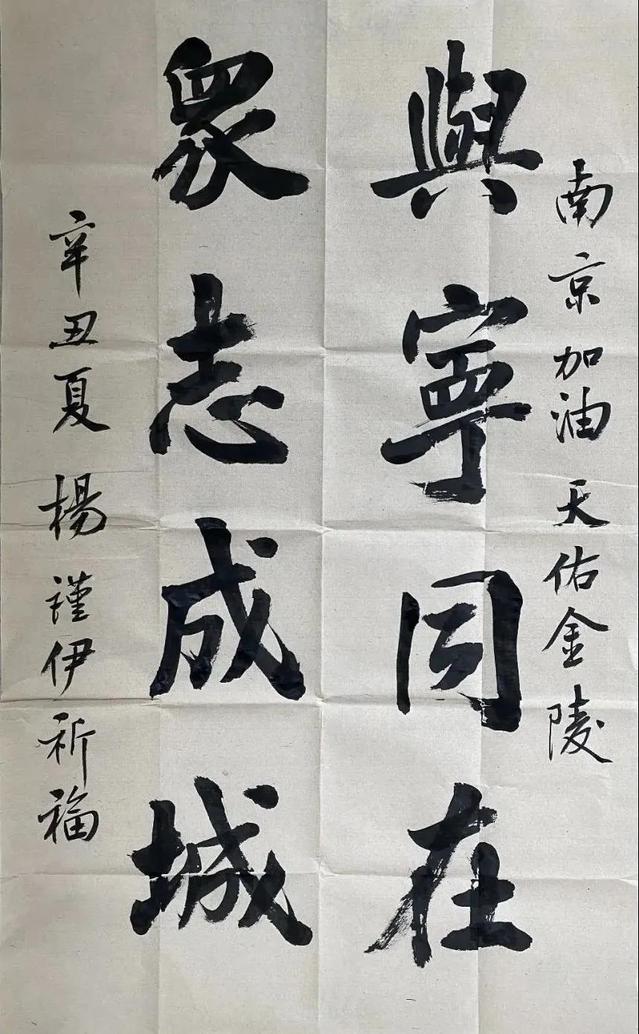 南京加油 天佑金陵
與寧同在
眾志成城
辛丑夏 楊謹伊祈福